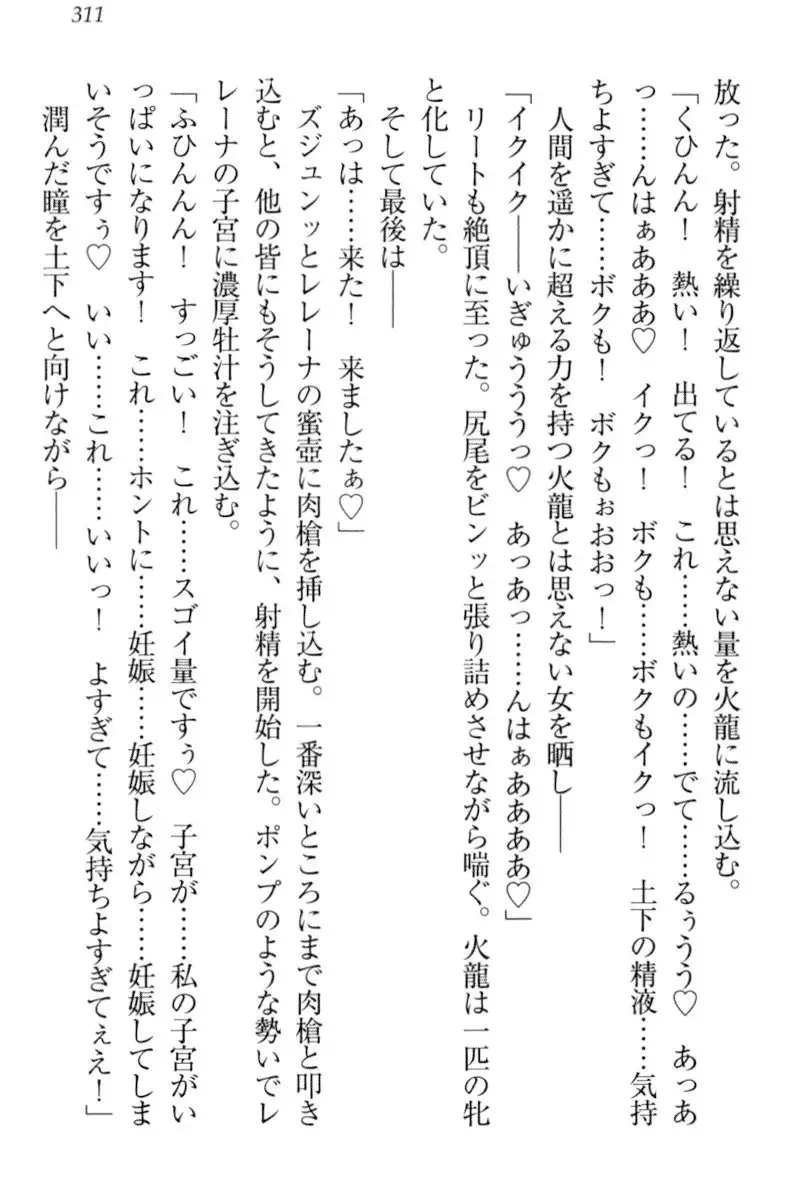 311
放った。射精を繰り返しているとは思えない量を火龍に流し込む。
「くひんん!　熱い!　出てる!　これ……熱いの……でて……るぅうう♡　あっあ
っ……んはぁあああ♡　イクっ!　ボクも……ボクもイクっ!　土下の精液……気持
ちよすぎて……ボクも!　ボクもぉおおっ!」
人間を遥かに超える力を持つ火龍とは思えない女を晒し――
「イクイク――いぎゅうううっ♡　あっあっ……んはぁああああ♡」
リートも絶頂に至った。尻尾をビンッと張り詰めさせながら喘ぐ。火龍は一匹の牝
と化していた。
そして最後は――
「あっは……来た!　来ましたぁ♡」
ズジュンッとレレーナの蜜壺に肉槍を挿し込む。一番深いところにまで肉槍と叩き
込むと、他の皆にもそうしてきたように、射精を開始した。ポンプのような勢いでレ
レーナの子宮に濃厚牡汁を注ぎ込む。
「ふひんんん!　すっごい!　これ……スゴイ量ですぅ♡　子宮が……私の子宮がい
っぱいになります!　これ……ホントに……妊娠……妊娠しながら……妊娠してしま
いそうですぅ♡　いい……これ……いいっ!　よすぎて……気持ちよすぎてぇえ!」
潤んだ瞳を土下へと向けながら――